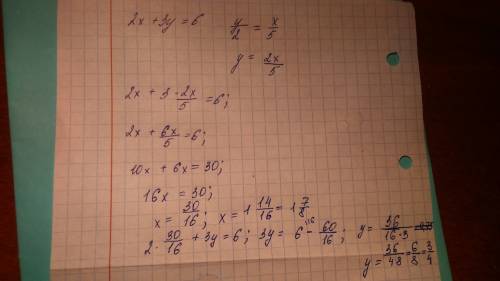 2x + 3y = 6   y/2 = x/5
y = 2x/5
2x + 3 · 2x/5 = 6;
2x + 6x/5 = 6;
10x + 6x = 30;
16x = 30;
x = 30/16; x = 1 14/16 = 1 7/8
2 · 30/16 + 3y = 6; 3y = 6 - 60/16; y = 36/(16·3)
y = 36/48 = 6/8 = 3/4